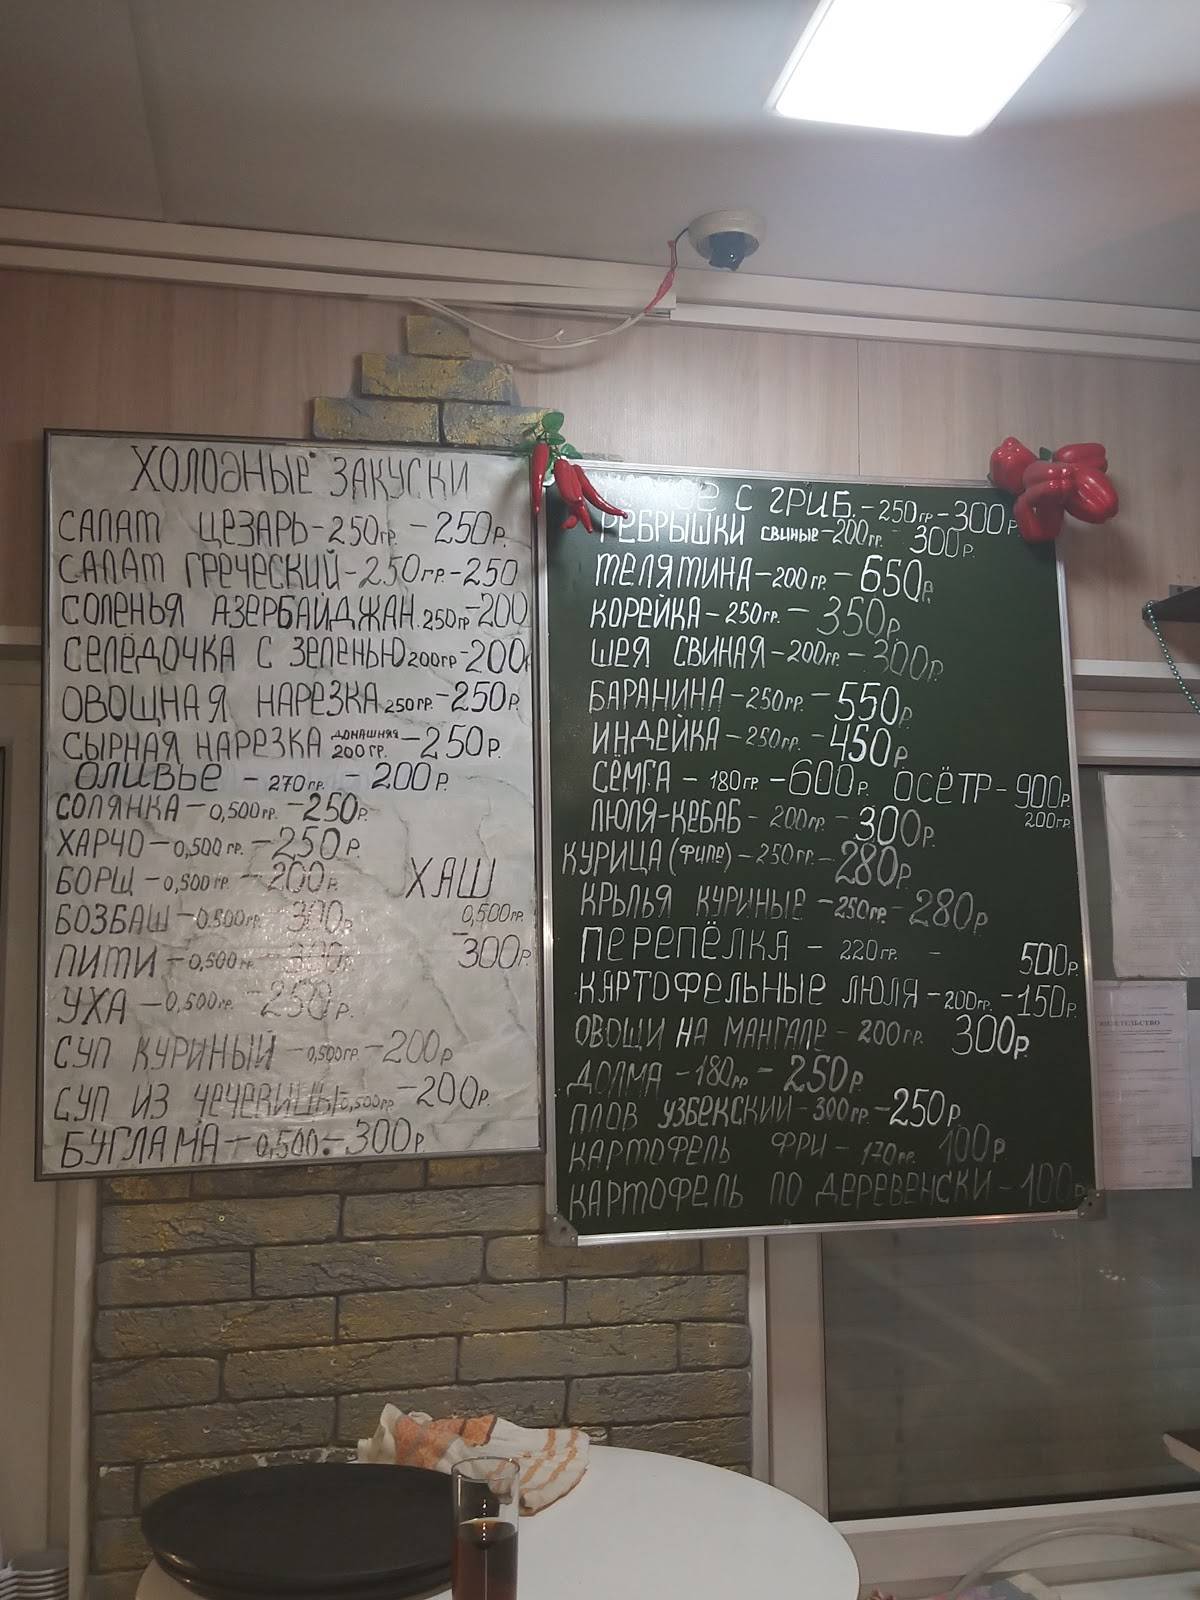 ХОЛОДНЫЕ ЗАКУСКИ
САЛАТ ЦЕЗАРЬ-250гр. -250р.
САЛАТ ГРЕЧЕСКИЙ-250гр.-250
СОЛЕНЬЯ АЗЕРБАЙДЖАН.250гр-200
СЕЛЁДОЧКА С ЗЕЛЕНЬЮ200гр-200р
ОВОЩНАЯ НАРЕЗКА250гр.-250р.
СЫРНАЯ НАРЕЗКА домашняя 200гр.-250р.
ОЛИВЬЕ -270гр. -200р.
СОЛЯНКА-0,500гр.-250р.
ХАРЧО-0,500гр.-250р.
БОРЩ-0,500гр -200р.
БОЗБАШ-0.500гр.-300р.
ПИТИ-0,500гр.-300р.
УХА-0,500гр.-250р.
СУП КУРИНЫЙ-0,500гр.-200р.
СУП ИЗ ЧЕЧЕВИЦЫ-0,500гр-200р.
БУГЛАМА-0,500.-300р.
ХАШ
0,500гр.
-300р.
С ГРИБ.-250гр-300р
РЕБРЫШКИ свиные-200гр.-300р.
ТЕЛЯТИНА-200гр.-650р.
КОРЕЙКА-250гр.-350р.
ШЕЯ СВИНАЯ-200гр.-300р.
БАРАНИНА-250гр.-550р.
ИНДЕЙКА-250гр.-450р.
СЁМГА-180гр-600р. ОСЁТР-900р.
200гр.
ЛЮЛЯ-КЕБАБ-200гр-300р.
КУРИЦА(филе)-250гр.-280р.
КРЫЛЬЯ КУРИНЫЕ-250гр.-280р
ПЕРЕПЁЛКА - 220гр. - 500р.
КАРТОФЕЛЬНЫЕ ЛЮЛЯ-200гр.-150р.
ОВОЩИ НА МАНГАЛЕ-200гр. 300р.
ДОЛМА-180гр-250р.
ПЛОВ УЗБЕКСКИЙ-300гр-250р.
КАРТОФЕЛЬ ФРИ-170гр. 100р.
КАРТОФЕЛЬ ПО ДЕРЕВЕНСКИ-100р